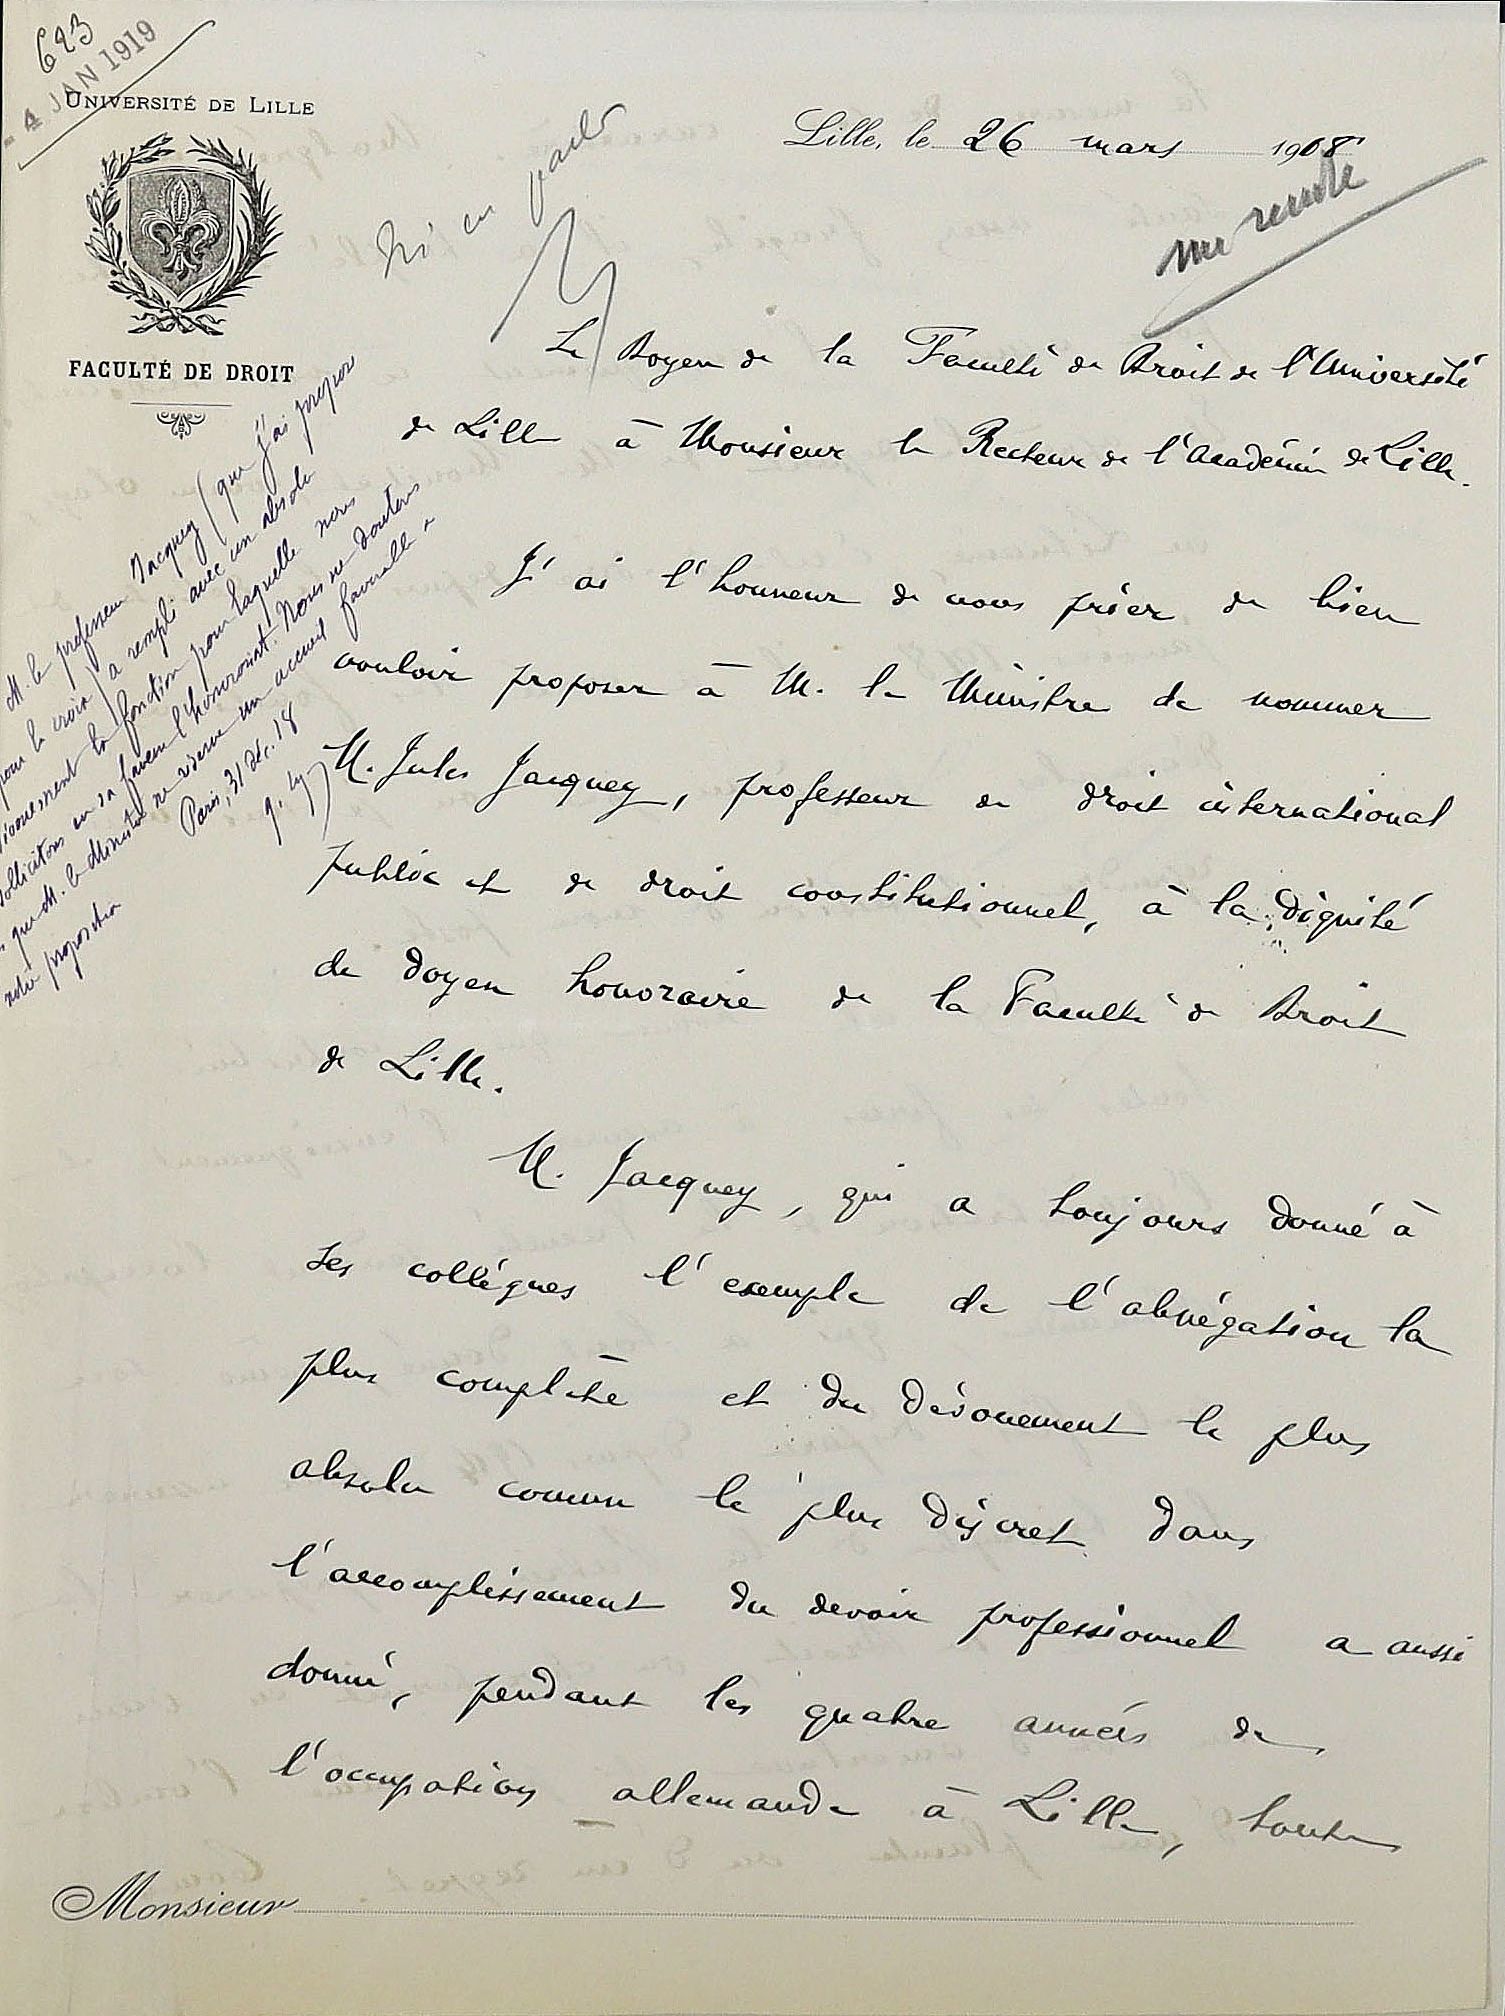 623
- 4 JAN 1919
UNIVERSITÉ DE LILLE
FACULTÉ DE DROIT
Lille, le 26 mars 1908
M. le professeur Jacquey (que j'ai proposé
pour la croix) a rempli avec un absolu
dévouement la fonction pour laquelle nous
sollicitons en sa faveur l'honorariat. Nous ne doutons
pas que M. le Ministre ne réserve un accueil favorable à
notre proposition
Paris, 31 déc. 18
Le Doyen de la Faculté de Droit de l'Université
de Lille à Monsieur le Recteur de l'Académie de Lille.
J'ai l'honneur de vous prier de bien
vouloir proposer à M. le Ministre de nommer
M. Jules Jacquey, professeur de droit international
public et de droit constitutionnel, à la dignité
de doyen honoraire de la Faculté de Droit
de Lille.
M. Jacquey, qui a toujours donné à
ses collègues l'exemple de l'abnégation la
plus complète et du dévouement le plus
absolu comme le plus discret dans
l'accomplissement du devoir professionnel a aussi
donné, pendant les quatre années de
l'occupation allemande à Lille, toute
Monsieur